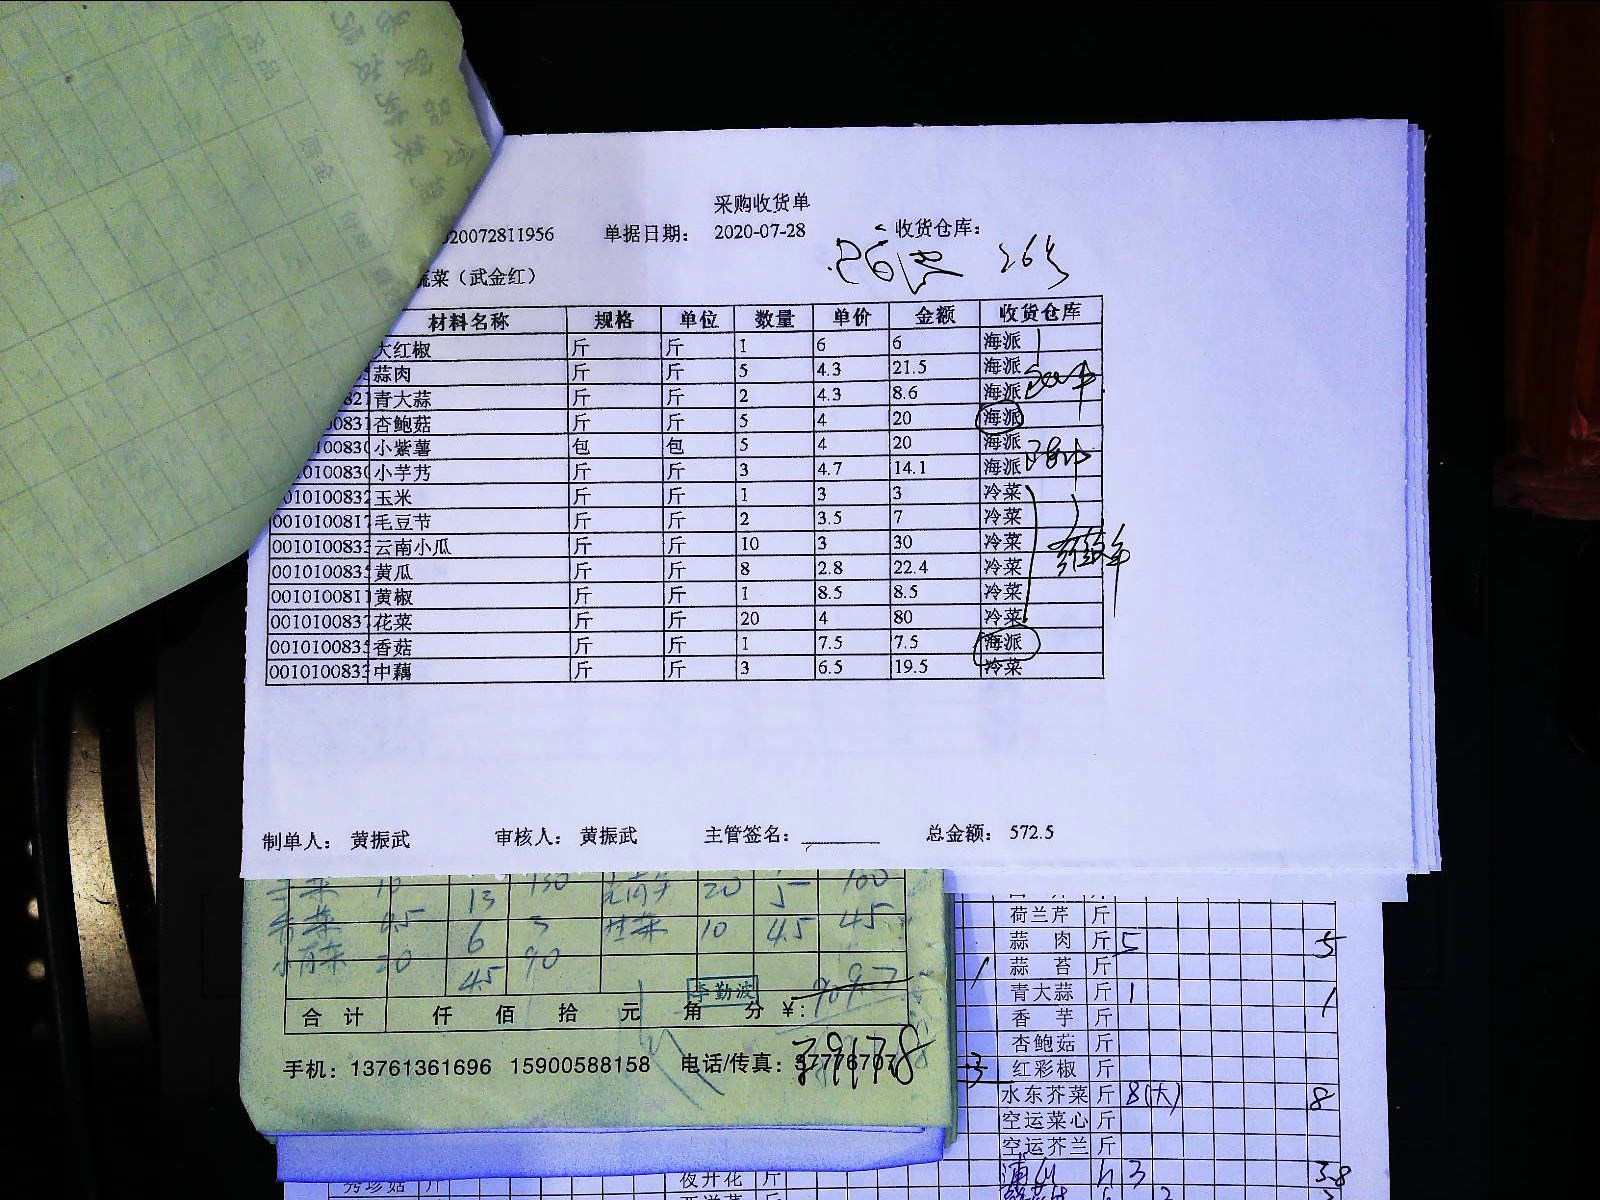 采购收货单
020072811956 单据日期： 2020-07-28 收货仓库：
26号
蔬菜（武金红）
材料名称 规格 单位 数量 单价 金额 收货仓库
大红椒 斤 斤 1 6 6 海派
蒜肉 斤 斤 5 4.3 21.5 海派
青大蒜 斤 斤 2 4.3 8.6 海派
0083 杏鲍菇 斤 斤 5 4 20 海派
0100830 小紫薯 包 包 5 4 20 海派
0100830 小芋艿 斤 斤 3 4.7 14.1 海派
010100832 玉米 斤 斤 1 3 3 冷菜
0010100817 毛豆节 斤 斤 2 3.5 7 冷菜
001010083 云南小瓜 斤 斤 10 3 30 冷菜
001010083 黄瓜 斤 斤 8 2.8 22.4 冷菜
001010081 黄椒 斤 斤 1 8.5 8.5 冷菜
001010083 花菜 斤 斤 20 4 80 冷菜
001010083 香菇 斤 斤 1 7.5 7.5 海派
001010083 中藕 斤 斤 3 6.5 19.5 冷菜
制单人： 黄振武 审核人： 黄振武 主管签名： 总金额： 572.5
13 130 20 5 100
6 10 4.5 45
小青菜 20 45 90
李勤波
合计 仟 佰 拾 元 角 分 ¥:
手机：13761361696 15900588158 电话/传真：57776707
7917.8
荷兰芹 斤
蒜肉 斤 5 5
蒜苔 斤
青大蒜 斤 1 1
香芋 斤
杏鲍菇 斤
3 红彩椒 斤
水东芥菜 斤 8(大) 8
空运菜心 斤
空运芥兰 斤
秀珍菇 斤 夜开花 斤